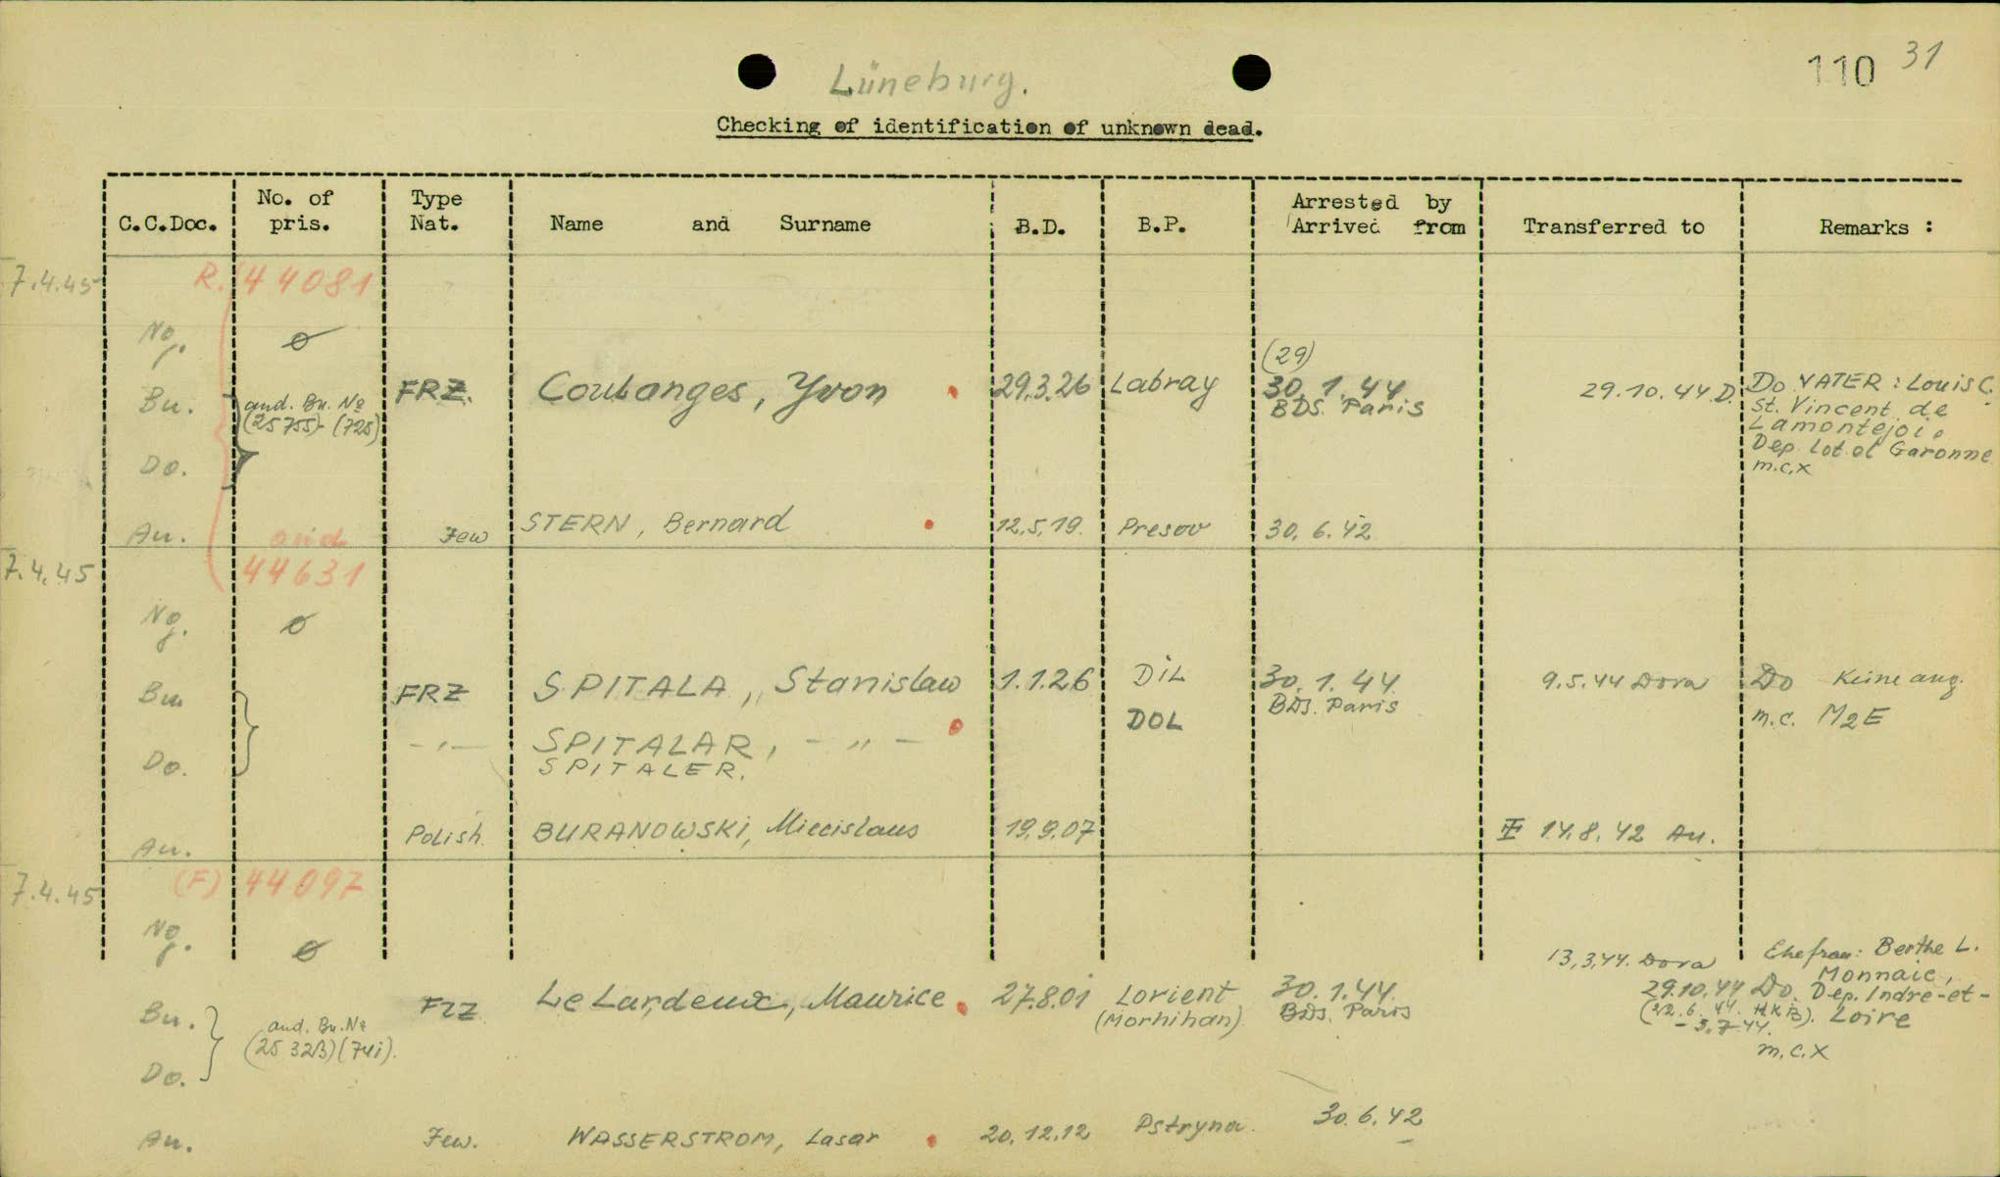 Lüneburg.
110 31
Checking of identification of unknown dead.
C.C.Doc.
No. of pris.
Type Nat.
Name and Surname
B.D.
B.P.
Arrested by
Arrived from
Transferred to
Remarks :
7.4.45 R. 44081
Ng. ø
Bu. and. Bu. No (25755)- (725) FRZ. Coulanges, Yvon 29.3.26 Labray (29) 30.1.44 BDS. Paris 29.10.44 D. Do VATER : Louis C.
St. Vincent de
Lamontejoi.
Dep. Lot et Garonne
m.c.x
Do.
Au. and Jew STERN, Bernard 12.5.19. Presov 30.6.42
7.4.45 44631
Ng. ø
Bu. FRZ SPITALA, Stanislaw 1.1.26 DiL 30.1.44 BDS. Paris 9.5.44 Dora Do Keine ang.
DOL m.c. M2E
Do. -"- SPITALAR, - " -
SPITALER.
Au. Polish BURANOWSKI, Miecislaus 19.9.07 14.8.42 Au.
7.4.45 (F) 44097
Ng. ø 13.3.44. Dora Ehefrau: Berthe L.
Monnaie,
Bu. and. Bu. No (25 323) (741). FRZ Le Lardeux, Maurice 27.8.01 Lorient (Morhihan) 30.1.44. BDS. Paris 29.10.44 Do. Dep. Indre-et-
(22.6.44. HKB). Loire
- 3.7.44.
m.c.x
Do.
Au. Jew. WASSERSTROM, Lasar 20.12.12 Pstryna. 30.6.42